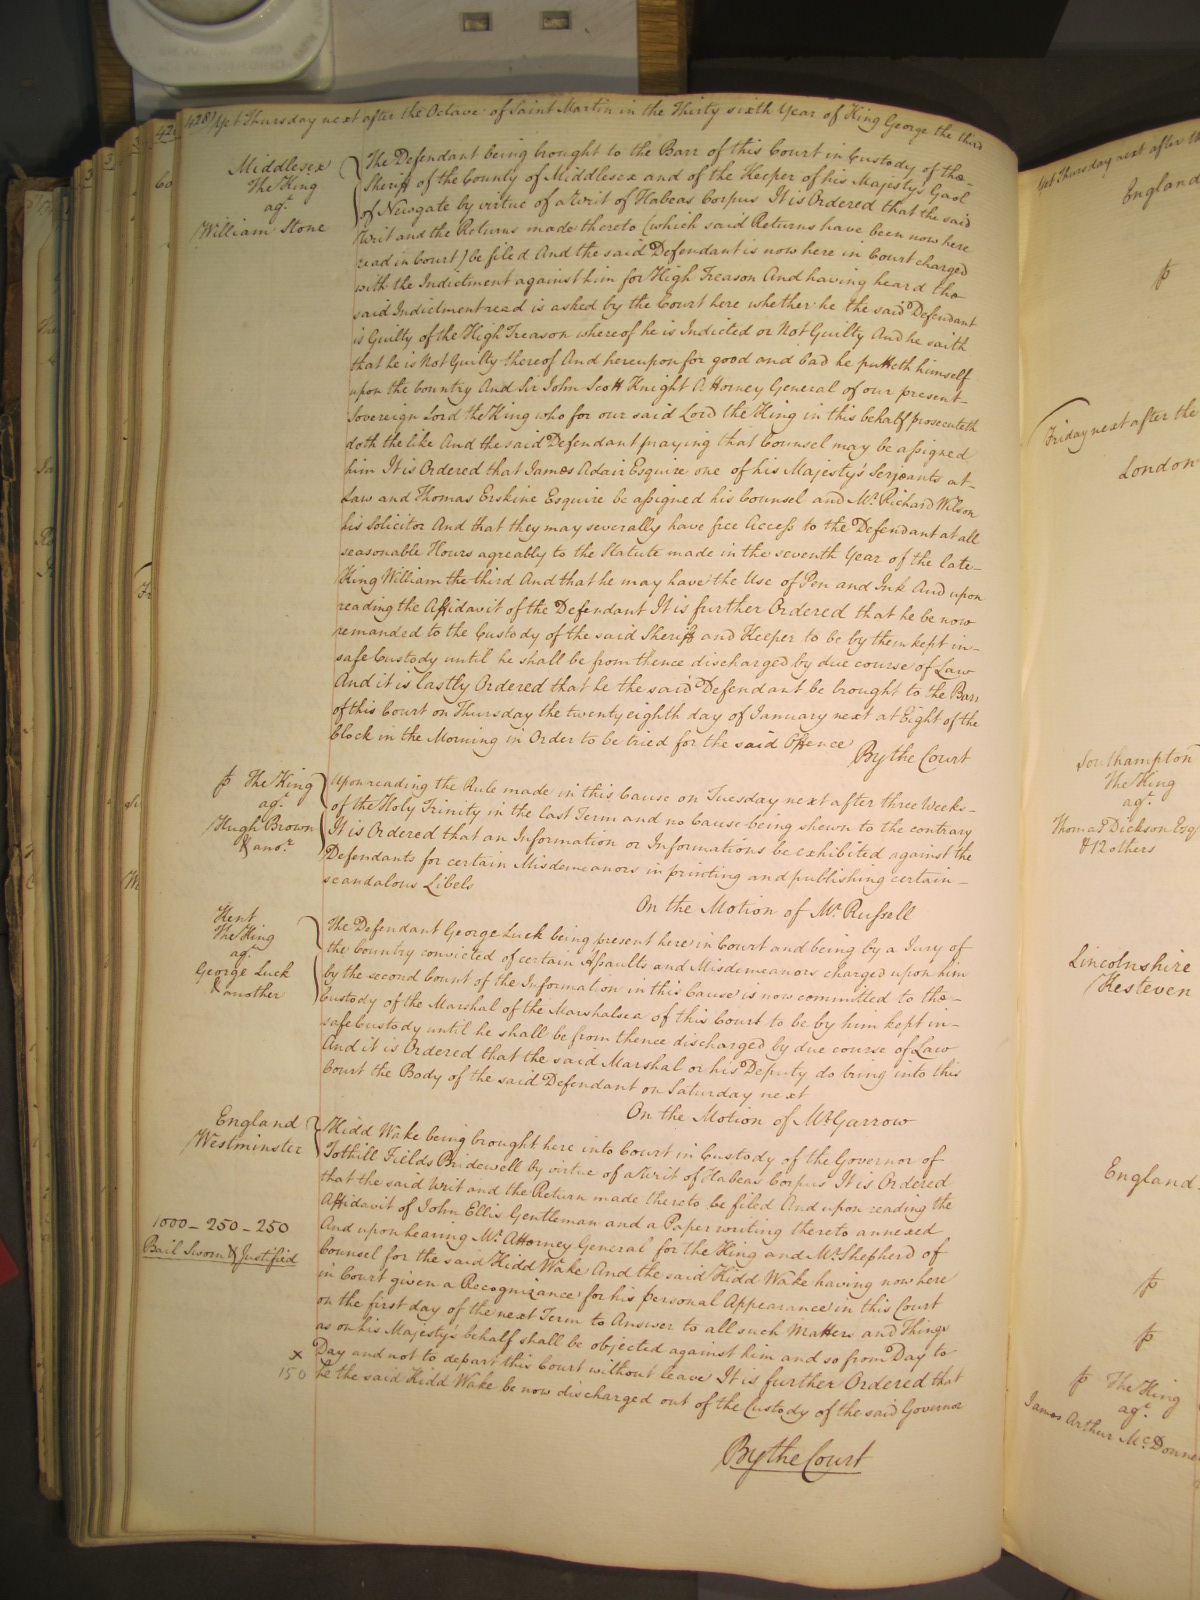 428) Yet Thursday next after the Octave of Saint Martin in the Thirty sixth Year of King George the third
Middlesex
The King
agt.
William Stone
The Defendant being brought to the Barr of this Court in Custody of the
Sheriff of the County of Middlesex and of the Keeper of his Majesty's Gaol
of Newgate by virtue of a Writ of Habeas Corpus It is Ordered that the said
Writ and the Returns made thereto (which said Returns have been now here
read in Court) be filed And the said Defendant is now here in Court charged
with the Indictment against him for High Treason And having heard the
said Indictment read is asked by the Court here whether he the said Defendant
is Guilty of the High Treason whereof he is Indicted or Not Guilty And he saith
that he is Not Guilty thereof And hereupon for good and bad he putteth himself
upon the Country And Sir John Scott Knight Attorney General of our present
Sovereign Lord the King who for our said Lord the King in this behalf prosecuteth
doth the like And the said Defendant praying that Counsel may be assigned
him It is Ordered that James Adair Esquire one of his Majesty's Serjeants at
Law and Thomas Erskine Esquire be assigned his Counsel and Mr. Richard Wilson
his Solicitor And that they may severally have free Access to the Defendant at all
seasonable Hours agreably to the Statute made in the seventh Year of the late
King William the third And that he may have the Use of Pen and Ink And upon
reading the Affidavit of the Defendant It is further Ordered that he be now
remanded to the Custody of the said Sheriff and Keeper to be by them kept in
safe Custody until he shall be from thence discharged by due course of Law
And it is lastly Ordered that he the said Defendant be brought to the Barr
of this Court on Thursday the twenty eighth day of January next at Eight of the
Clock in the Morning in Order to be tried for the said Offence
By the Court
The King
agt.
Hugh Brown
& anor.
Upon reading the Rule made in this Cause on Tuesday next after three Weeks
of the Holy Trinity in the last Term and no Cause being shewn to the contrary
It is Ordered that an Information or Informations be exhibited against the
Defendants for certain Misdemeanors in printing and publishing certain
scandalous Libels
On the Motion of Mr. Russell
Kent
The King
agt.
George Luck
& another
The Defendant George Luck being present here in Court and being by a Jury of
the Country convicted of certain Assaults and Misdemeanors charged upon him
by the second Count of the Information in this Cause is now committed to the
Custody of the Marshal of the Marshalsea of this Court to be by him kept in
safe Custody until he shall be from thence discharged by due course of Law
And it is Ordered that the said Marshal or his Deputy do bring into this
Court the Body of the said Defendant on Saturday next
On the Motion of Mr. Garrow
England
Westminster
Kidd Wake being brought here into Court in Custody of the Governor of
Tothill Fields Bridewell by virtue of a Writ of Habeas Corpus It is Ordered
that the said Writ and the Return made thereto be filed And upon reading the
Affidavit of John Ellis Gentleman and a Paper writing thereto annexed
And upon hearing Mr. Attorney General for the King and Mr. Shepherd of
Counsel for the said Kidd Wake And the said Kidd Wake having now here
in Court given a Recognizance for his personal Appearance in this Court
on the first day of the next Term to Answer to all such Matters and Things
as on his Majesty's behalf shall be objected against him and so from Day to
Day and not to depart this Court without leave It is further Ordered that
he the said Kidd Wake be now discharged out of the Custody of the said Governor
1000 - 250 - 250
Bail Sworn & Justified
x
150
By the Court
Yet Thursday next after th
England
Friday next after the
London
Southampton
The King
agt.
Thomas Dickson Esq
& 12 others
Lincolnshire
Kesteven
England
The King
agt.
James Arthur McDonne